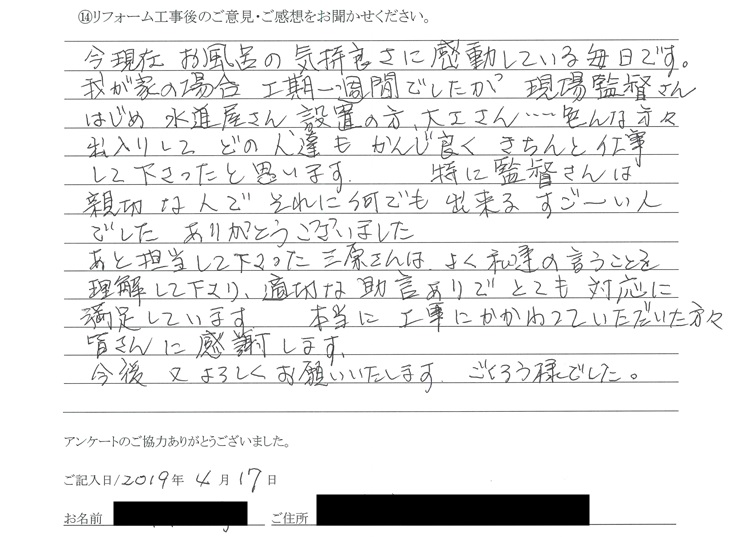 ⑭リフォーム工事後のご意見・ご感想をお聞かせください。
今現在 お風呂の気持良さに感動している毎日です。
我が家の場合 工期一週間でしたが 現場監督さん
はじめ 水道屋さん、設置の方、大工さん……色んな方々
出入りして どの人達も かんじ良く きちんと仕事
して下さったと思います。 特に監督さんは
親切な人で それに何でも出来る すご〜い人
でした ありがとうございました
あと担当して下さった三原さんは、よく私達の言うことを
理解して下さり、適切な助言ありで とても対応に
満足しています 本当に 工事にかかわっていただいた方々
皆さんに感謝します、
今後 又よろしくお願いいたします。 ごくろう様でした。
アンケートのご協力ありがとうございました。
ご記入日/2019年4月17日
お名前 ご住所